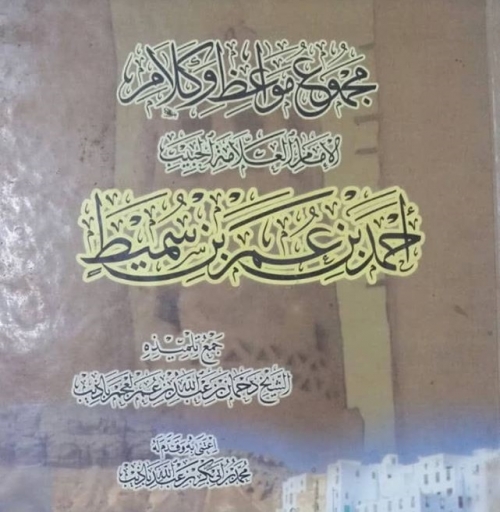 مجموع مواعظ وكلام
الإمام العلامة الحبيب
أحمد بن عمر بن سميط
جمع تلميذه
الشيخ دحمان بن عبدالله بن عمر لعجم باذيب
اعتنى به وقدم له
محمد بن أبي بكر بن عبدالله باذيب